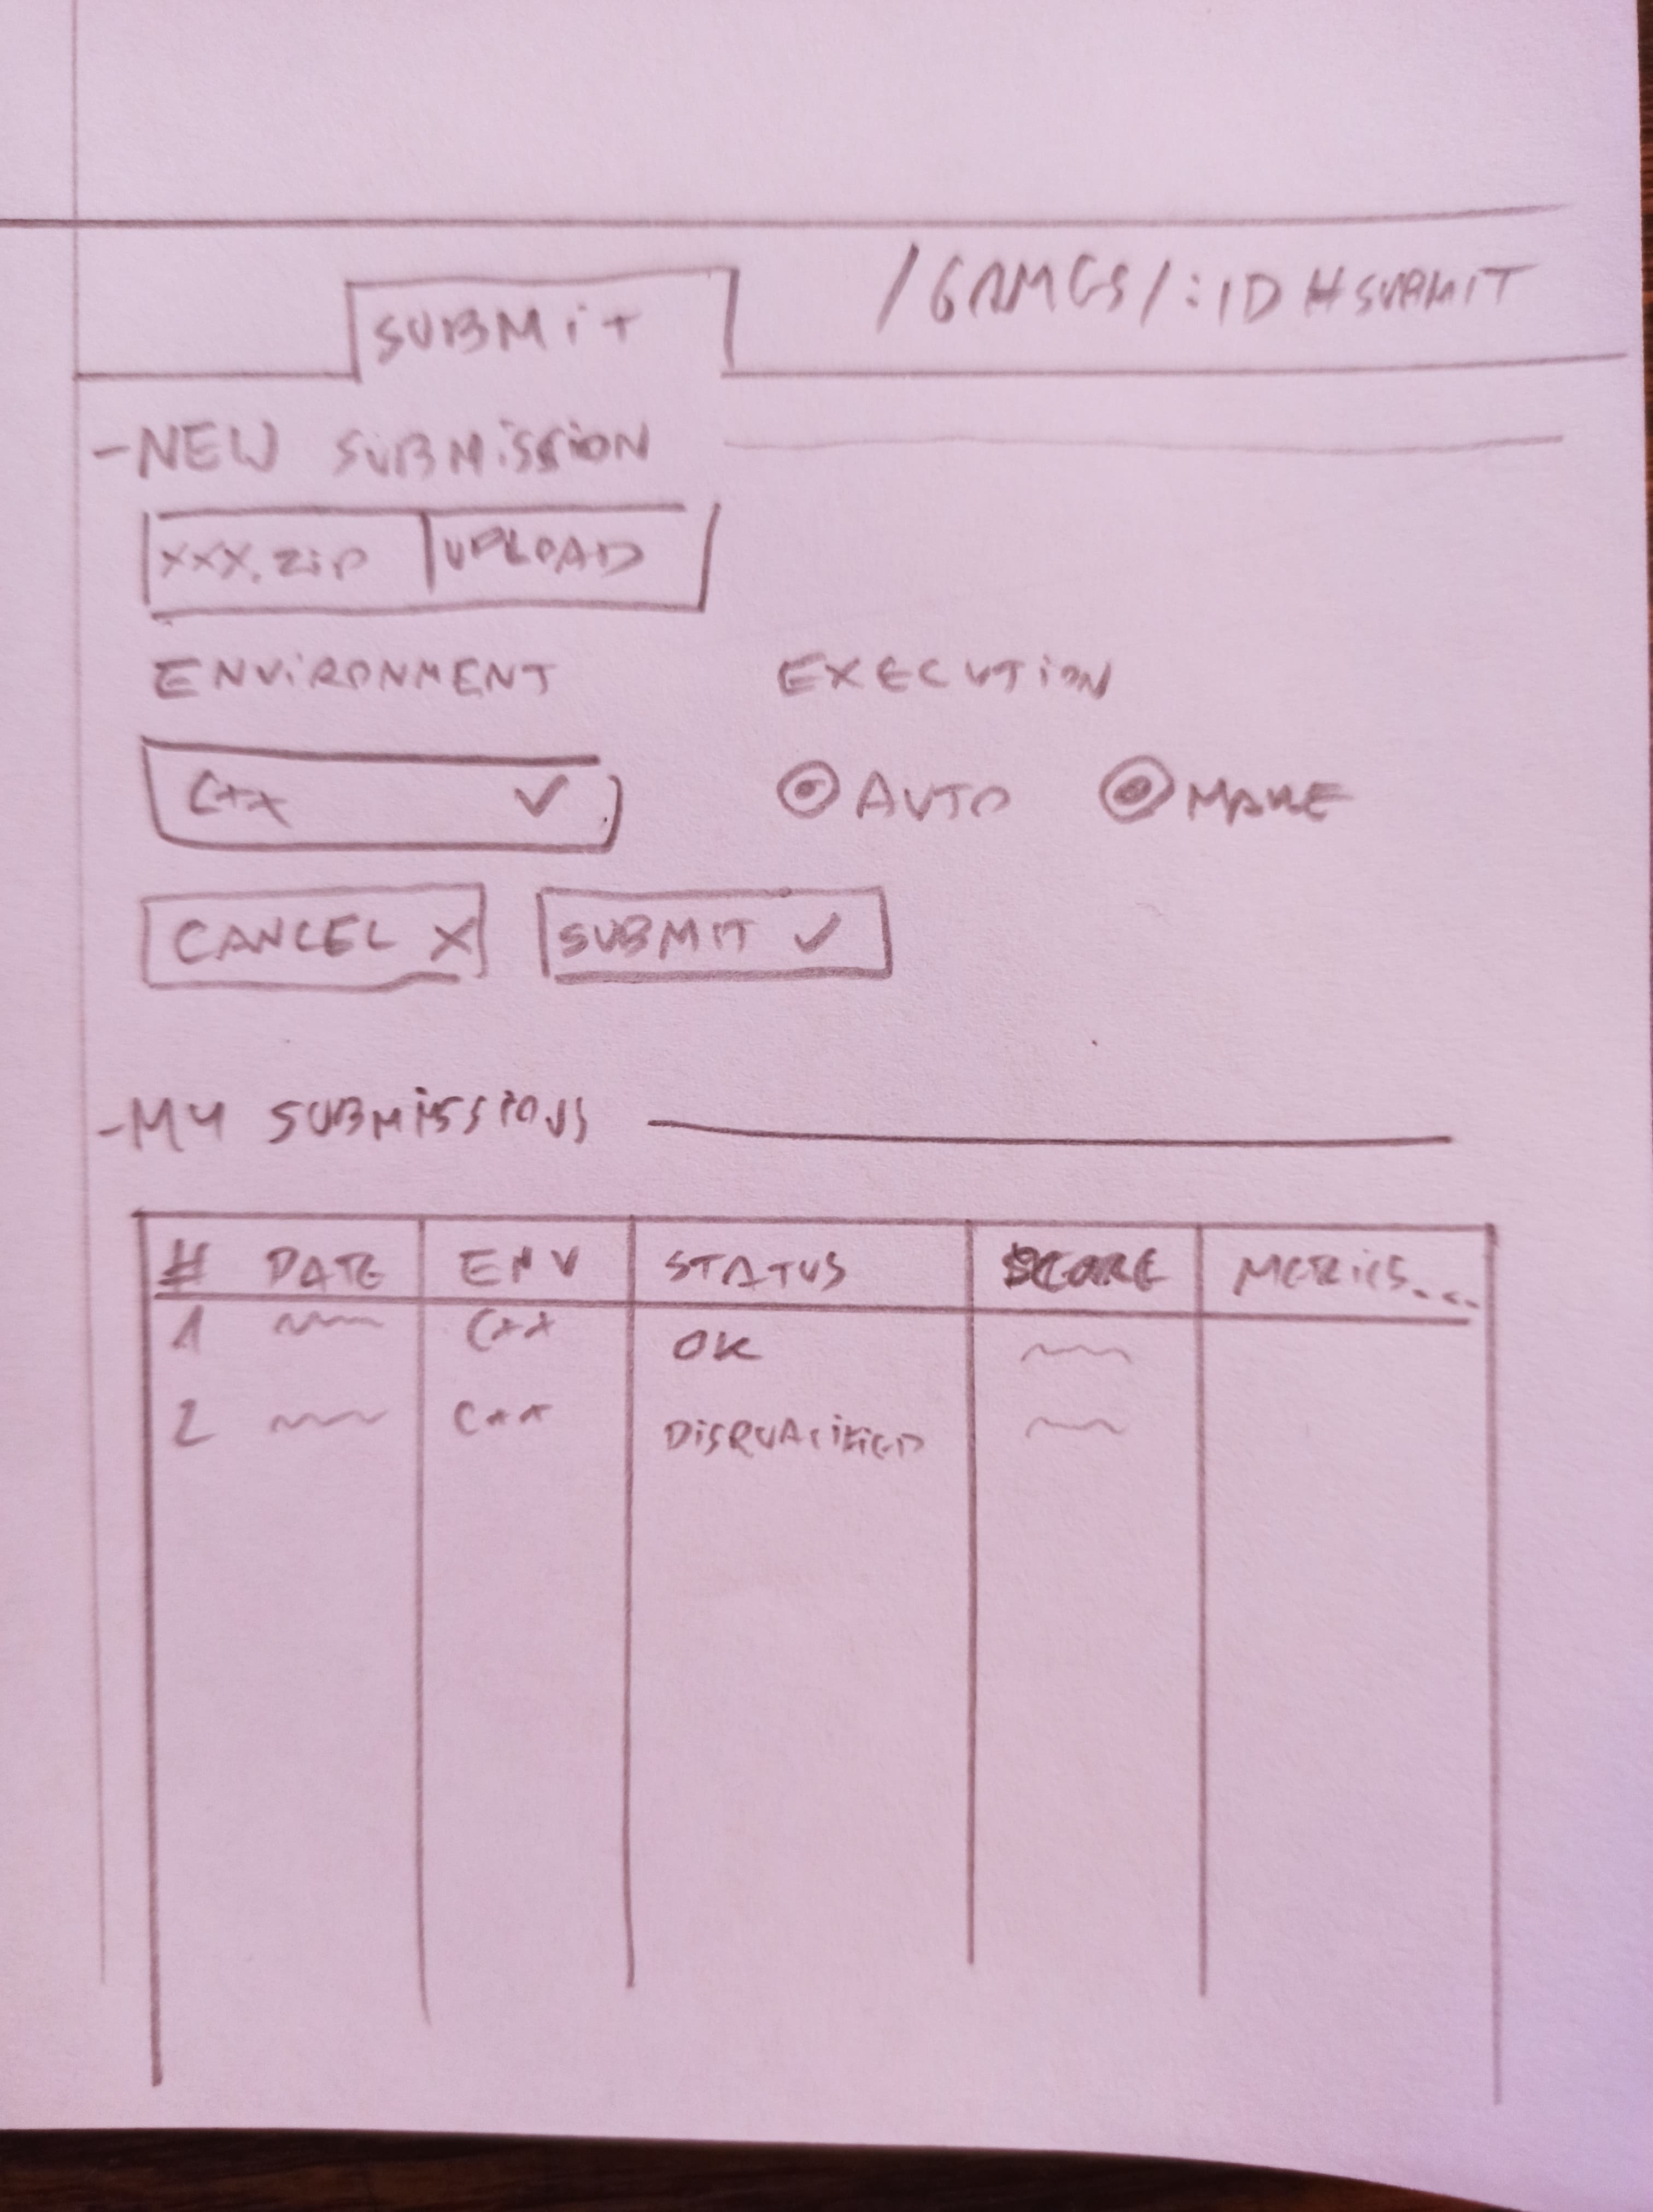 SUBMIT
/GAMES/:ID #SUBMIT
-NEW SUBMISSION
XXX.ZIP UPLOAD
ENVIRONMENT EXECUTION
C++ AUTO MAKE
CANCEL X SUBMIT
-MY SUBMISSIONS
# DATE ENV STATUS SCORE METRICS...
1 C++ OK
2 C++ DISQUALIFIED